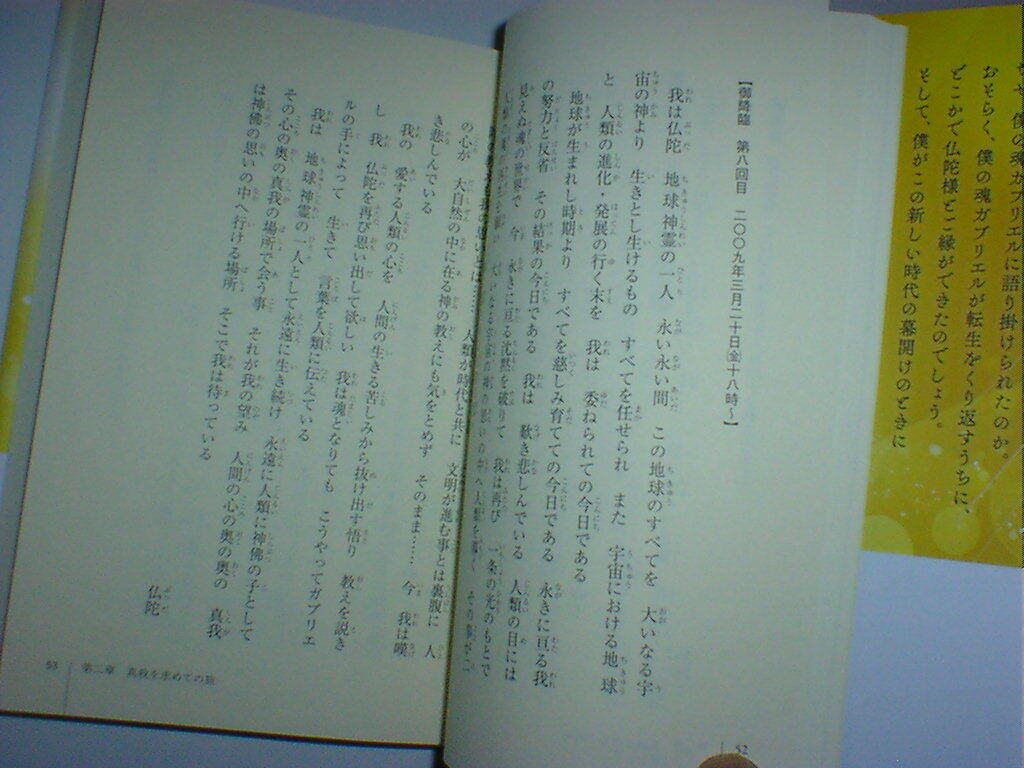 僕の魂ガブリエルに語り掛けられたのか。
おそらく、僕の魂ガブリエルが転生をくり返すうちに、
どこかで仏陀様とご縁ができたのでしょう。
そして、僕がこの新しい時代の幕開けのときに
【御降臨　第八回目　二〇〇九年三月二十日㈮十八時〜】
我は仏陀　地球神霊の一人　永い永い間　この地球のすべてを　大いなる宇
宙の神より　生きとし生けるもの　すべてを任せられ　また　宇宙における地球
と　人類の進化・発展の行く末を　我は　委ねられての今日である
地球が生まれし時期より　すべてを慈しみ育てての今日である　永きに亘る我
の努力と反省　その結果の今日である　我は　歎き悲しんでいる　人類の目には
見えぬ魂の世界で　今　永きに亘る沈黙を破りて　我は再び　一条の光のもとで
52
我の思いとは……　人類が時代と共に　文明が進む事とは裏腹に　人
の心が　大自然の中に在る神の教えにも気をとめず　そのまま……　今　我は嘆
き悲しんでいる
我の　愛する人類の心を　人間の生きる苦しみから抜け出す悟り　教えを説き
し　我　仏陀を再び思い出して欲しい　我は魂となりても　こうやってガブリエ
ルの手によって　生きて　言葉を人類に伝えている
我は　地球神霊の一人として永遠に生き続け　永遠に人類に神佛の子として
その心の奥の真我の場所で会う事　それが我の望み　人間の心の奥の奥の　真我
は神佛の思いの中へ行ける場所　そこで我は待っている
仏陀
53　第二章　真我を求めての旅